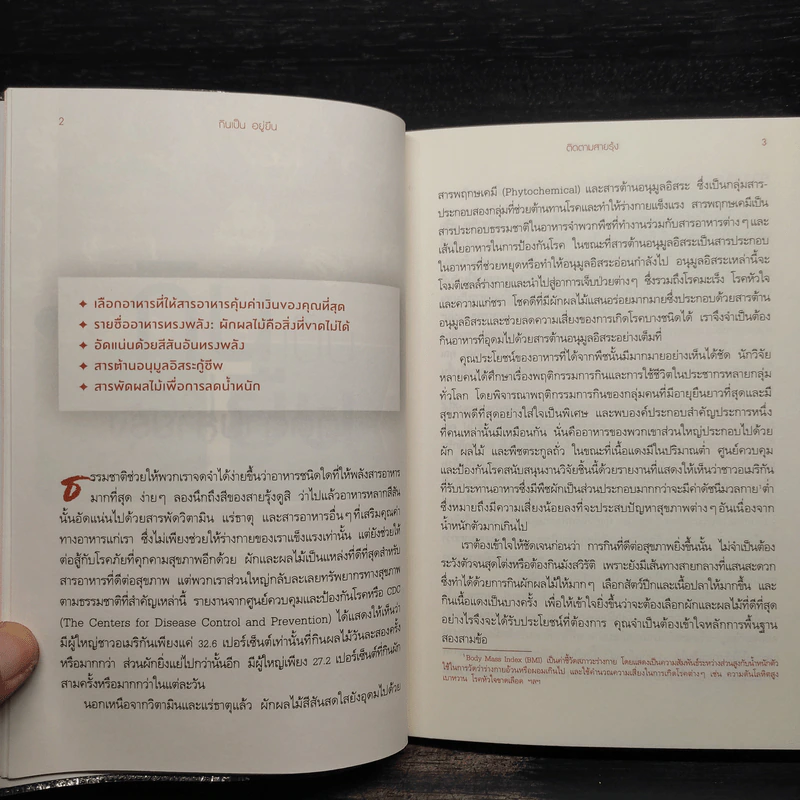 2
กินเป็น อยู่ยืน
✦ เลือกอาหารที่ให้สารอาหารคุ้มค่าเงินของคุณที่สุด
✦ รายชื่ออาหารทรงพลัง: ผักผลไม้คือสิ่งที่ขาดไม่ได้
✦ อัดแน่นด้วยสีสันอันทรงพลัง
✦ สารต้านอนุมูลอิสระกู้ชีพ
✦ สารพัดผลไม้เพื่อการลดน้ำหนัก
ธรรมชาติช่วยให้พวกเราจดจำได้ง่ายขึ้นว่าอาหารชนิดใดที่ให้พลังสารอาหาร
มากที่สุด ง่ายๆ ลองนึกถึงสีของสายรุ้งดูสิ ว่าไปแล้วอาหารหลากสีสัน
นั้นอัดแน่นไปด้วยสารพัดวิตามิน แร่ธาตุ และสารอาหารอื่นๆ ที่เสริมคุณค่า
ทางอาหารแก่เรา ซึ่งไม่เพียงช่วยให้ร่างกายของเราแข็งแรงเท่านั้น แต่ยังช่วยให้
ต่อสู้กับโรคภัยที่คุกคามสุขภาพอีกด้วย ผักและผลไม้เป็นแหล่งที่ดีที่สุดสำหรับ
สารอาหารที่ดีต่อสุขภาพ แต่พวกเราส่วนใหญ่กลับละเลยทรัพยากรทางสุขภาพ
ตามธรรมชาติที่สำคัญเหล่านี้ รายงานจากศูนย์ควบคุมและป้องกันโรคหรือ CDC
(The Centers for Disease Control and Prevention) ได้แสดงให้เห็นว่า
มีผู้ใหญ่ชาวอเมริกันเพียงแค่ 32.6 เปอร์เซ็นต์เท่านั้นที่กินผลไม้วันละสองครั้ง
หรือมากกว่า ส่วนผักยิ่งแย่ไปกว่านั้นอีก มีผู้ใหญ่เพียง 27.2 เปอร์เซ็นต์ที่กินผัก
สามครั้งหรือมากกว่าในแต่ละวัน
นอกเหนือจากวิตามินและแร่ธาตุแล้ว ผักผลไม้สีสันสดใสยังอุดมไปด้วย
ติดตามสายรุ้ง
3
สารพฤกษเคมี (Phytochemical) และสารต้านอนุมูลอิสระ ซึ่งเป็นกลุ่มสาร-
ประกอบสองกลุ่มที่ช่วยต้านทานโรคและทำให้ร่างกายแข็งแรง สารพฤกษเคมีเป็น
สารประกอบธรรมชาติในอาหารจำพวกพืชที่ทำงานร่วมกับสารอาหารต่างๆ และ
เส้นใยอาหารในการป้องกันโรค ในขณะที่สารต้านอนุมูลอิสระเป็นสารประกอบ
ในอาหารที่ช่วยหยุดหรือทำให้อนุมูลอิสระอ่อนกำลังไป อนุมูลอิสระเหล่านี้จะ
โจมตีเซลล์ร่างกายและนำไปสู่อาการเจ็บป่วยต่างๆ ซึ่งรวมถึงโรคมะเร็ง โรคหัวใจ
และความแก่ชรา โชคดีที่มีผักผลไม้แสนอร่อยมากมายซึ่งประกอบด้วยสารต้าน
อนุมูลอิสระและช่วยลดความเสี่ยงของการเกิดโรคบางชนิดได้ เราจึงจำเป็นต้อง
กินอาหารที่อุดมไปด้วยสารต้านอนุมูลอิสระอย่างเต็มที่
คุณประโยชน์ของอาหารที่ได้จากพืชนั้นมีมากมายอย่างเห็นได้ชัด นักวิจัย
หลายคนได้ศึกษาเรื่องพฤติกรรมการกินและการใช้ชีวิตในประชากรหลายกลุ่ม
ทั่วโลก โดยพิจารณาพฤติกรรมการกินของกลุ่มคนที่มีอายุยืนยาวที่สุดและมี
สุขภาพดีที่สุดอย่างใส่ใจเป็นพิเศษ และพบองค์ประกอบสำคัญประการหนึ่ง
ที่คนเหล่านั้นมีเหมือนกัน นั่นคืออาหารของพวกเขาส่วนใหญ่ประกอบไปด้วย
ผัก ผลไม้ และพืชตระกูลถั่ว ในขณะที่เนื้อแดงมีในปริมาณต่ำ ศูนย์ควบคุม
และป้องกันโรคสนับสนุนงานวิจัยชิ้นนี้ด้วยรายงานที่แสดงให้เห็นว่าชาวอเมริกัน
ที่รับประทานอาหารซึ่งมีพืชผักเป็นส่วนประกอบมากกว่าจะมีค่าดัชนีมวลกาย¹ต่ำ
ซึ่งหมายถึงมีความเสี่ยงน้อยลงที่จะประสบปัญหาสุขภาพต่างๆ อันเนื่องจาก
น้ำหนักตัวมากเกินไป
เราต้องเข้าใจให้ชัดเจนก่อนว่า การกินที่ดีต่อสุขภาพยิ่งขึ้นนั้น ไม่จำเป็นต้อง
ระวังตัวจนสุดโต่งหรือต้องกินมังสวิรัติ เพราะยังมีเส้นทางสายกลางที่แสนสะดวก
ซึ่งทำได้ด้วยการกินผักผลไม้ให้มากๆ เลือกสัตว์ปีกและเนื้อปลาให้มากขึ้น และ
กินเนื้อแดงเป็นบางครั้ง เพื่อให้เข้าใจยิ่งขึ้นว่าจะต้องเลือกผักและผลไม้ที่ดีที่สุด
อย่างไรจึงจะได้รับประโยชน์ที่ต้องการ คุณจำเป็นต้องเข้าใจหลักการพื้นฐาน
สองสามข้อ
¹ Body Mass Index (BMI) เป็นค่าชี้วัดสภาวะร่างกาย โดยแสดงเป็นความสัมพันธ์ระหว่างส่วนสูงกับน้ำหนักตัว
ใช้ในการวัดว่าร่างกายอ้วนหรือผอมเกินไป และใช้คำนวณความเสี่ยงในการเกิดโรคต่างๆ เช่น ความดันโลหิตสูง
เบาหวาน โรคหัวใจขาดเลือด ฯลฯ